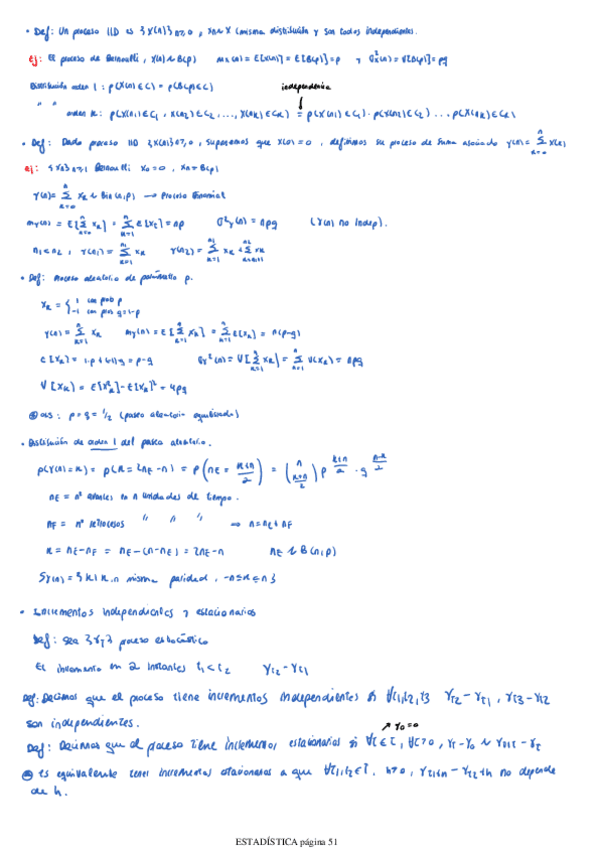 • Def: Un proceso IID es {X(n)} n≥0, Xn~X (misma distribución y son todos independientes).
ej: El proceso de Bernoulli, X(n)~B(p) mx(n) = E[X(n)] = E[B(p)] = p y σ²x(n) = V[B(p)] = pq
Distribución orden 1: p(X(n)∈C) = p(B(p)∈C)
independencia
" " orden k: p(X(n1)∈C1, X(n2)∈C2, ..., X(nk)∈Ck) = p(X(n1)∈C1)·p(X(n2)∈C2) ... p(X(nk)∈Ck)
• Def: Dado proceso IID {X(n)} n≥0, suponemos que X(0)=0, definimos su proceso de suma asociado Y(n) = Σ X(k)
ej: {Xn} n≥1 Bernoulli X0=0, Xn~B(p)
Y(n) = Σ Xk ~ Bin(n,p) → Proceso Binomial
my(n) = E[Σ Xk] = Σ E[Xk] = np σ²y(n) = npq (Y(n) no indep).
n1<n2, Y(n1) = Σ Xk Y(n2) = Σ Xk + Σ Xk
• Def: Proceso aleatorio de parámetro p.
Xk = { 1 con prob p
-1 con prob q=1-p
Y(n) = Σ Xk my(n) = E[Σ Xk] = Σ E[Xk] = n(p-q)
E[Xk] = 1·p + (-1)q = p-q σy²(n) = V[Σ Xk] = Σ V(Xk) = 4npq
V[Xk] = E[Xk²] - E[Xk]² = 4pq
obs: p = q = 1/2 (paseo aleatorio equilibrado)
• Distribución de orden 1 del paseo aleatorio.
p(Y(n)=k) = p(k = 2nE - n) = p(nE = (k+n)/2) = (n (k+n)/2) p^((k+n)/2) · q^((n-k)/2)
nE = nº avances en n unidades de tiempo.
nF = nº retrocesos " n " ⇒ n = nE + nF
k = nE - nF = nE - (n - nE) = 2nE - n nE ~ B(n,p)
SY(n) = {k | k, n misma paridad, -n≤k≤n}
• Incrementos independientes y estacionarios
Def: sea {Yt} proceso estocástico
El incremento en 2 instantes t1<t2 Yt2 - Yt1
Def: Decimos que el proceso tiene incrementos independientes si ∀t1,t2,t3 Yt2 - Yt1, Yt3 - Yt2
son independientes.
↗ Y0=0
Def: Decimos que el proceso tiene incrementos estacionarios si ∀t∈T, ∀τ>0, Yτ - Y0 ~ Yt+τ - Yt
es equivalente tener incrementos estacionarios a que ∀t1,t2∈T, h>0, Yt1+h - Yt2+h no depende
de h.
ESTADÍSTICA página 51